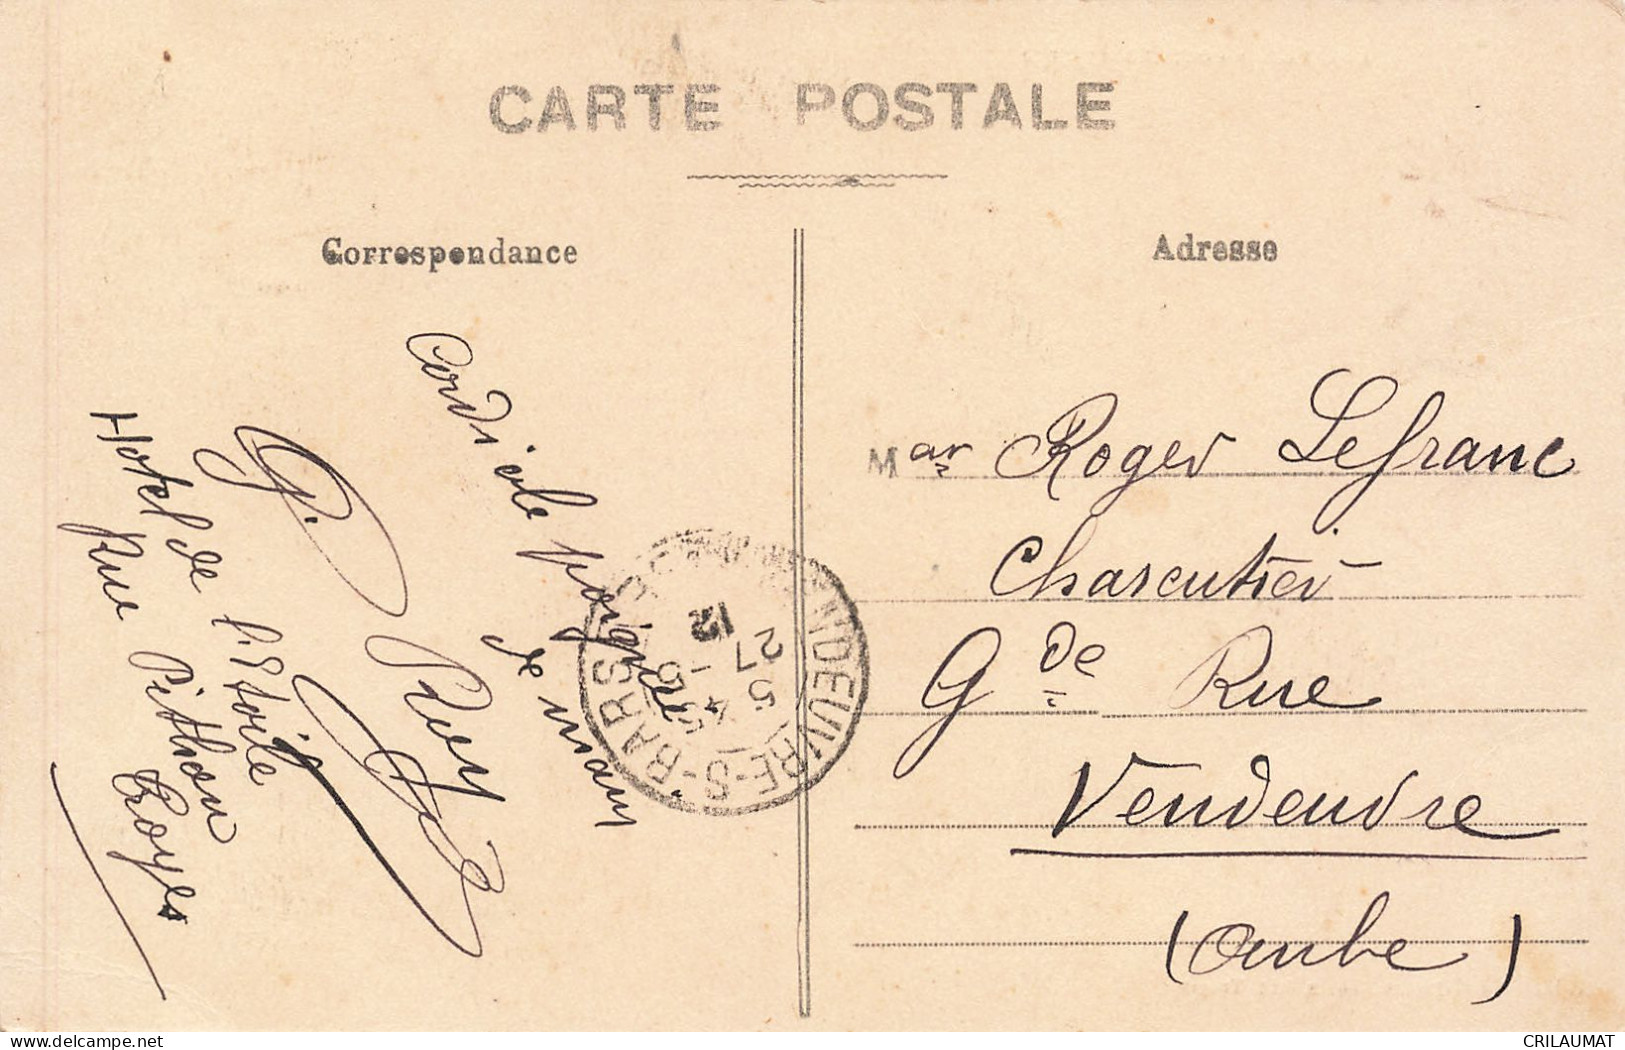 CARTE POSTALE
Correspondance
Cordiale poignée
de main
G. Roy
Hotel de l'Etoile
Rue Pithou
Troyes
VENDEUVRE-S-BARSE
4 45
27-5
12
Adresse
Mʳ Roger Lefranc
Charcutier
Gde Rue
Vendeuvre
(Aube)
www.delcampe.net
CRILAUMAT